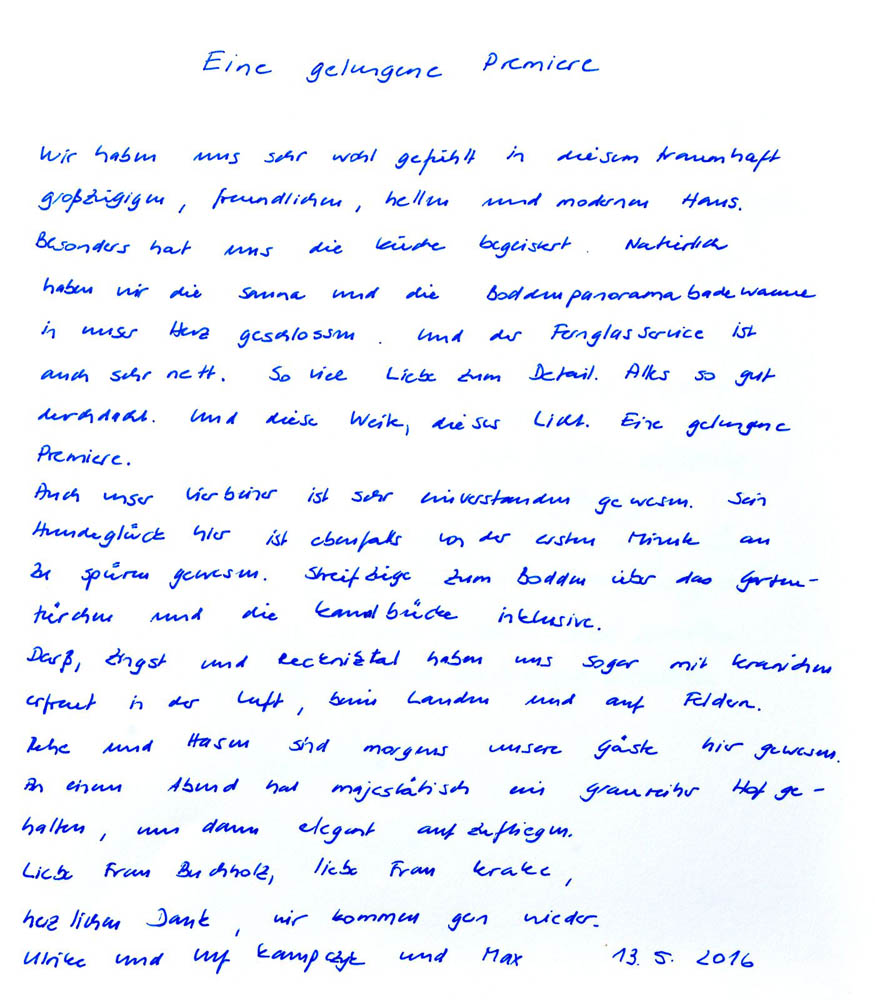 Eine gelungene Premiere
Wir haben uns sehr wohl gefühlt in diesem traumhaft
großzügigen, freundlichen, hellen und modernen Haus.
Besonders hat uns die Küche begeistert. Natürlich
haben wir die Sauna und die Boddenpanoramabadewanne
in unser Herz geschlossen. Und der Fernglasservice ist
auch sehr nett. So viel Liebe zum Detail. Alles so gut
durchdacht. Und diese Weite, dieses Licht. Eine gelungene
Premiere.
Auch unser Vierbeiner ist sehr einverstanden gewesen. Sein
Hundeglück hier ist ebenfalls von der ersten Minute an
zu spüren gewesen. Streifzüge zum Bodden über das Garten-
türchen und die Kanalbrücke inklusive.
Darß, Zingst und Recknitztal haben uns sogar mit Kranichen
erfreut in der Luft, beim Landen und auf Feldern.
Rehe und Hasen sind morgens unsere Gäste hier gewesen.
An einem Abend hat majestätisch ein Graureiher Hof ge-
halten, um dann elegant aufzufliegen.
Liebe Frau Buchholz, liebe Frau Krake,
herzlichen Dank, wir kommen gern wieder.
Ulrike und Ulf Kampczyk und Max 13. 5. 2016